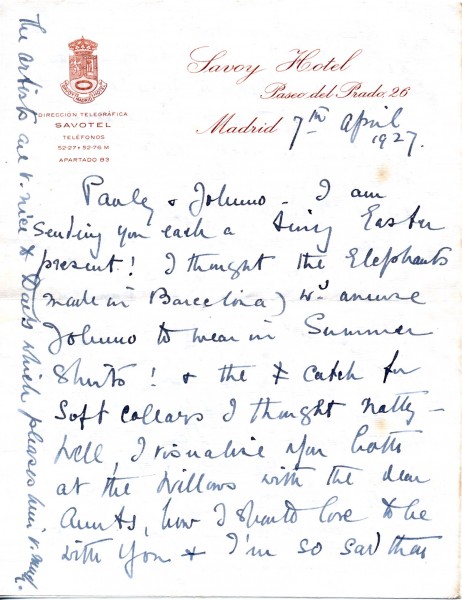 Savoy Hotel
Paseo del Prado, 26
Madrid 7th April
1927.
DIRECCION TELEGRÁFICA
SAVOTEL
TELÉFONOS
52-27 · 52-76 M
APARTADO 83
Pauley & Johnno - I am
sending you each a tiny Easter
present! I thought the Elephants
made in Barcelona) wd amuse
Johnno to wear in Summer
Shirts! & the catch for
Soft collars I thought natty -
Well, I visualise you both
at the Willows with the dear
Aunts, how I should love to be
with you & I'm so sad that
The artists are v. nice to Dads which pleases him v. much.